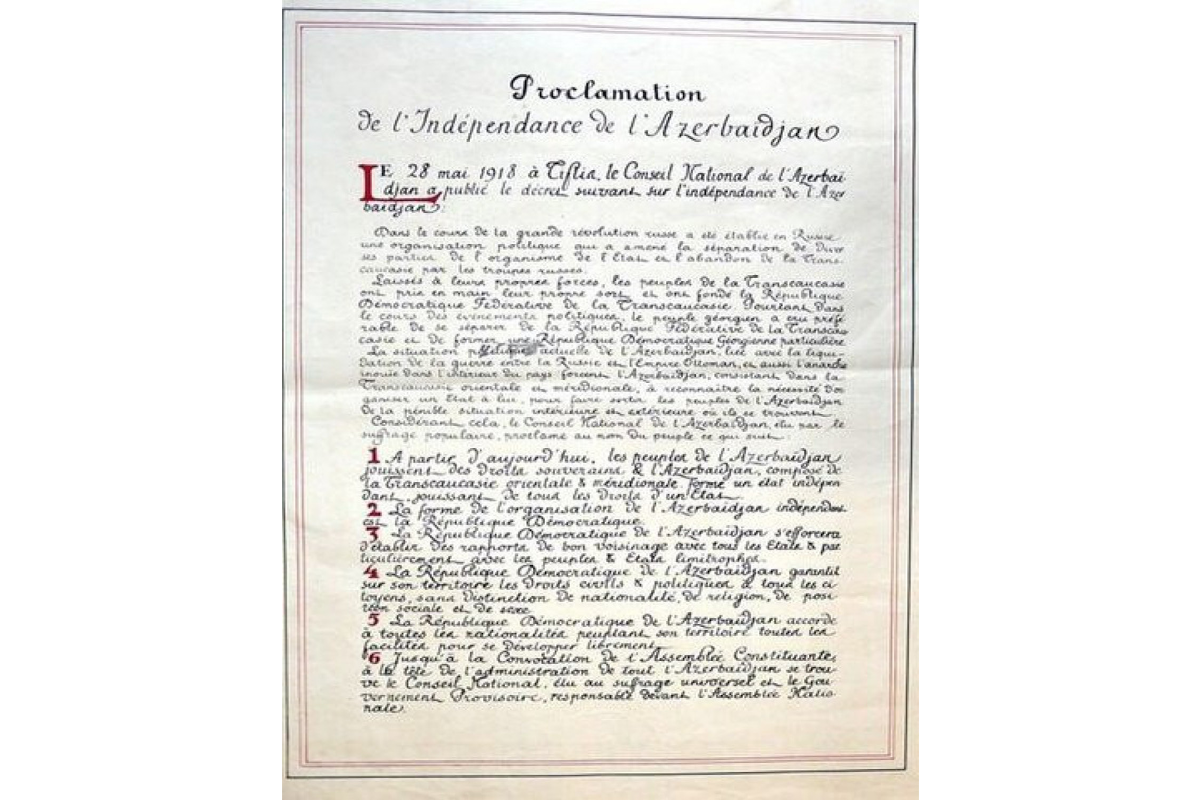 Proclamation
de l'Indépendance de l'Azerbaïdjan
LE 28 mai 1918 à Tiflis, le Conseil National de l'Azerbai
djan a publié le décret suivant sur l'indépendance de l'Azer
baidjan:
Dans le cours de la grande révolution russe a été établie en Russie
une organisation politique qui a amené la séparation de Diver
ses parties de l'organisme de l'Etat et l'abandon de la Trans-
caucasie par les troupes russes.
Laissés à leurs propres forces, les peuples de la Transcaucasie
ont pris en main leur propre sort et ont fondé la République
Démocratique Fédérative de la Transcaucasie. Pourtant dans
le cours des événements politiques, le peuple géorgien a cru préfé
rable de se séparer de la République Fédérative de la Transcau
casie et de former une République Démocratique Géorgienne particulière
La situation politique actuelle de l'Azerbaidjan, liée avec la liqui-
dation de la guerre entre la Russie et l'Empire Ottoman, et aussi l'anarchie
inouie dans l'intérieur du pays forcent l'Azerbaidjan, consistant dans la
Transcaucasie orientale et méridionale, à reconnaitre la nécessité d'or
ganiser un Etat à lui, pour faire sortir les peuples de l'Azerbaidjan
de la pénible situation intérieure et extérieure où ils se trouvent.
Considérant cela, le Conseil National de l'Azerbaidjan, élu par le
suffrage populaire, proclame au nom du peuple ce qui suit:
1 A partir d'aujourd'hui, les peuples de l'Azerbaïdjan
jouissent des Droits souverains & l'Azerbaidjan, composé de
la Transcaucasie orientale & méridionale forme un état indépen
dant, jouissant de tous les Droits d'un Etat.
2 La forme de l'organisation de l'Azerbaidjan indépendant
est la République Démocratique.
3 La République Démocratique de l'Azerbaidjan s'efforcera
d'établir des rapports de bon voisinage avec tous les Etats & par
ticulièrement avec les peuples & Etats limitrophes.
4 La République Démocratique de l'Azerbaidjan garantit
sur son territoire les Droits civils & politiques à tous les ci
toyens, sans distinction de nationalité, de religion, de posi
tion sociale et de sexe
5 La République Démocratique de l'Azerbaidjan accorde
à toutes les nationalités peuplant son territoire toutes les
facilités pour se développer librement.
6 Jusqu'à la Convocation de l'Assemblée Constituante,
à la tête de l'administration de tout l'Azerbaïdjan se trou
ve le Conseil National, élu au suffrage universel et le Gou
vernement Provisoire, responsable devant l'Assemblée Natio
nale.